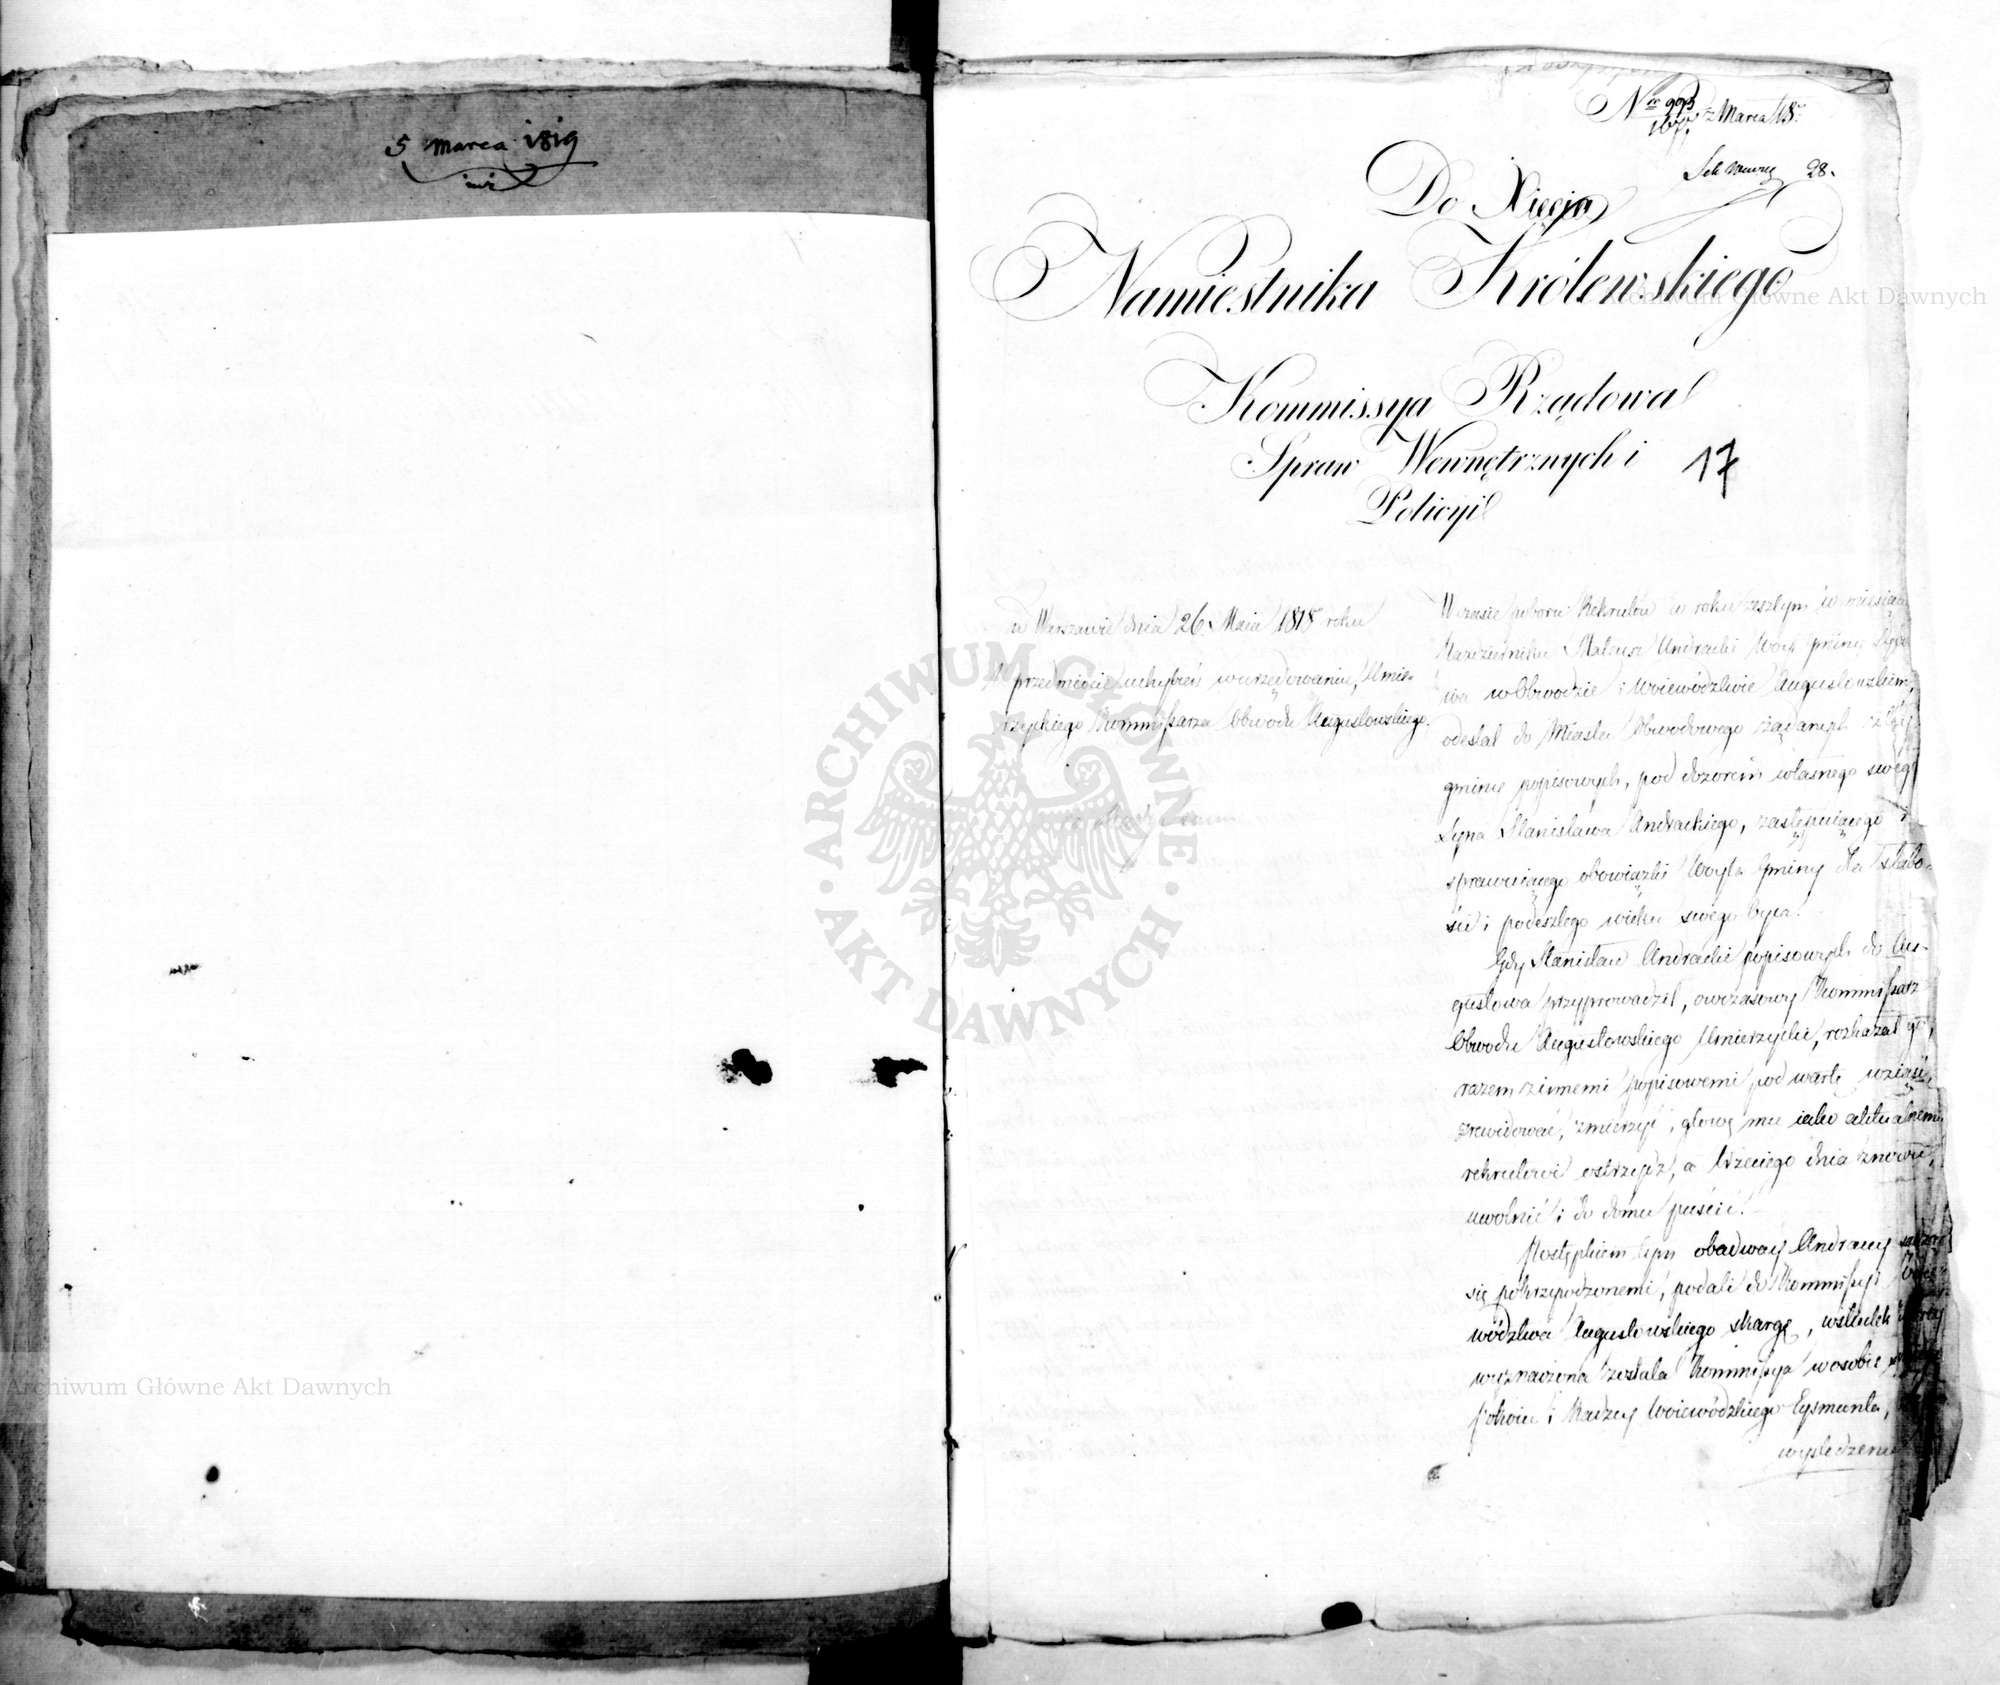 5 Marca 1819
Nro 993 z Marca 18.
28.
Do Xięcia
Namiestnika Królewskiego
Kommissya Rządowa
Spraw Wewnętrznych i
Policyi
17
w Warszawie dnia 26. Maia 1818 roku
W przedmiocie uchybień w urzędowaniu, Umie-
rzyckiego Kommissarza Obwodu Augustowskiego.
W czasie poboru Rekrutów w roku zeszłym w miesiącu
Październiku Mateusz Andracki Woyt gminy
wa w Obwodzie i Woiewództwie Augustowskiem,
odesłał do Miasta Obwodowego żądanych z téy
gminy popisowych, pod dozorem własnego swego
Syna Stanisława Andrackiego, zastępuiącego i
sprawuiącego obowiązki Woyta Gminy dla słabo-
ści i podeszłego wieku swego Oyca.
Gdy Stanisław Andracki popisowych do Au-
gustowa przyprowadził, owczasowy Kommissarz
Obwodu Augustowskiego Umierzycki, rozkazał go,
razem z innemi popisowemi pod wartę wziąść,
zrewidować, zmierzyć, głowę mu iako aktualnemu
rekrutowi ostrzydz, a trzeciego dnia znowu,
uwolnić i do domu puścić.
Postępkiem tym obadway Andraccy
się pokrzywdzonemi, podali do Kommissyi Woie-
wództwa Augustowskiego skargę, w skutek któréy
wyznaczona została Kommissya w osobie
Pokoiu i Radzcy Woiewódzkiego Eysmunta,
wyśledzenia
Archiwum Główne Akt Dawnych
Archiwum Główne Akt Dawnych
ARCHIWUM GŁÓWNE
AKT DAWNYCH